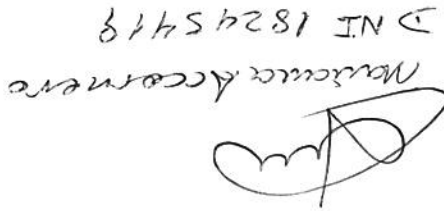 Mariana Accornero
DNI 18245419